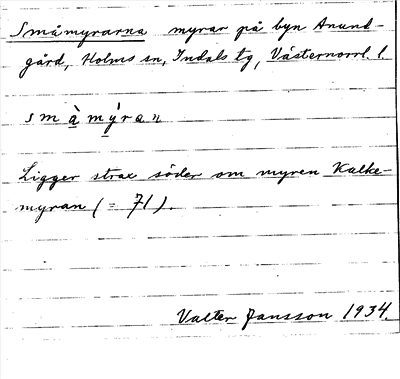 Småmyrarna myrar på byn Anund-
gård, Holms sn, Indals tg, Västernorrl. l.
smàmýran
Ligger strax söder om myren Kalke-
myran (= 71).
Valter Jansson 1934.